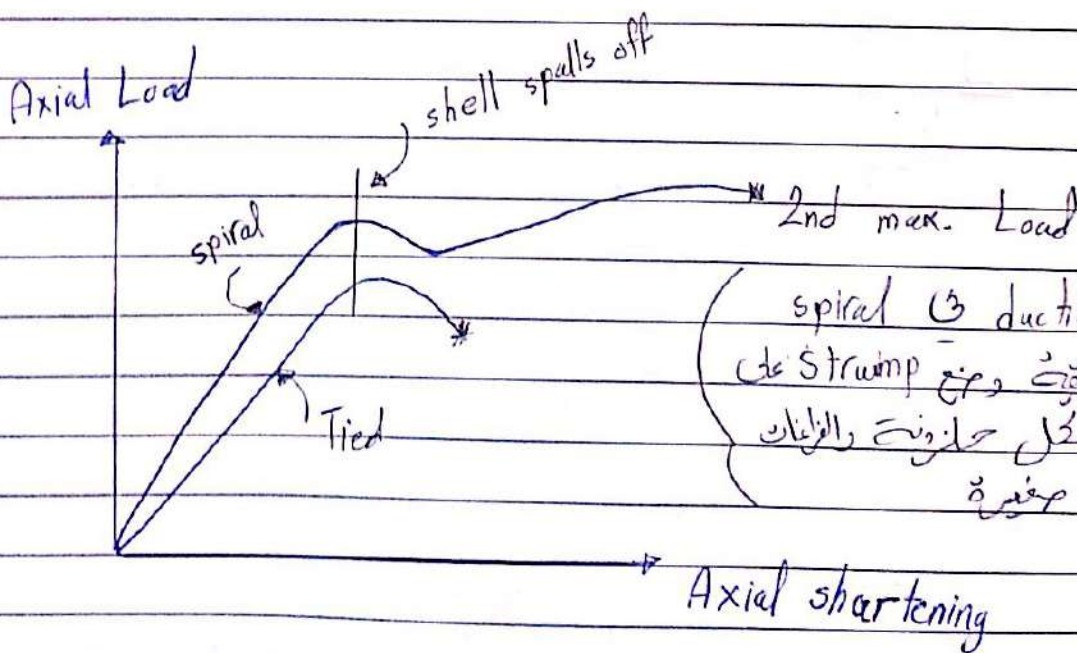 Axial Load
shell spalls off
spiral
2nd max. Load
Tied
spiral ducti
وضع Strwimp على
حلزونة والفراغات
صغيرة
Axial shartening